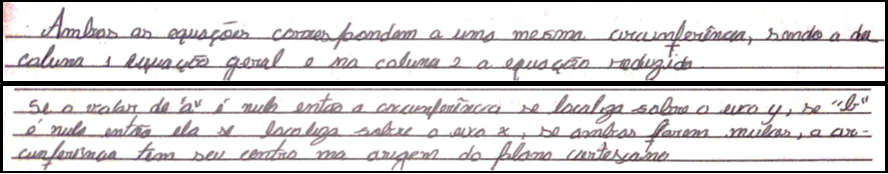 Ambas as equações correspondem a uma mesma circunferência, sendo a da
coluna 1 equação geral e na coluna 2 a equação reduzida.
Se o valor de "a" é nulo então a circunferência se localiza sobre o eixo y, se "b"
é nulo então ela se localiza sobre o eixo x, se ambas forem nulas, a cir-
cunferência tem seu centro na origem do plano cartesiano